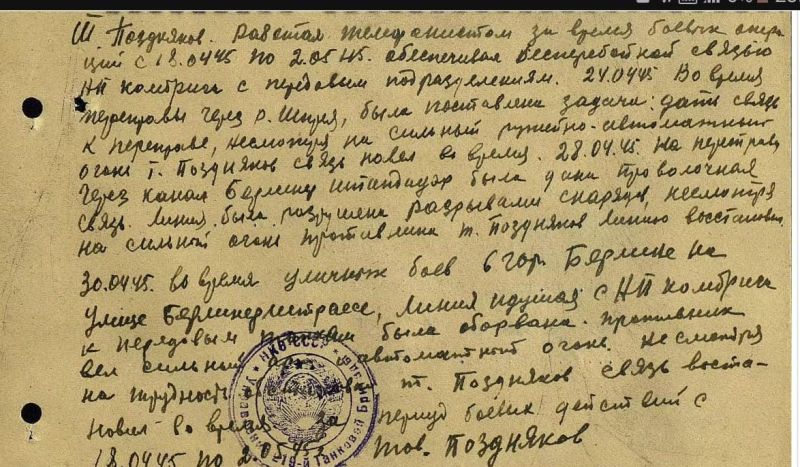 Ш Поздняков. Работая телефонистом за время боевых опера
ций с 18.04.45 по 2.05.45. обеспечивал бесперебойной связью
НП комбрига с передовым подразделениям. 24.04.45 Во время
переправы через р. Шпрея, была поставлена задача: дать связь
к переправе, несмотря на сильный ружейно-автоматный
огонь т. Поздняков связь навел во время. 28.04.45. на переправе
Через канал Берлинер была дана проволочная
связь. Линия была разрушена разрывами снарядов, несмотря
на сильный огонь противника т. Поздняков линию восстановил
30.04.45. во время уличных боев в гор. Берлине на
улице Берлинерштрассе, линия идущая с НП комбрига
к передовым была оборвана. противник
вел сильный автоматный огонь. Несмотря
на трудность т. Поздняков связь восста-
новил во время. За период боевых действий с
18.04.45 по 2.05.45 тов. Поздняков
НКО СССР
танковой